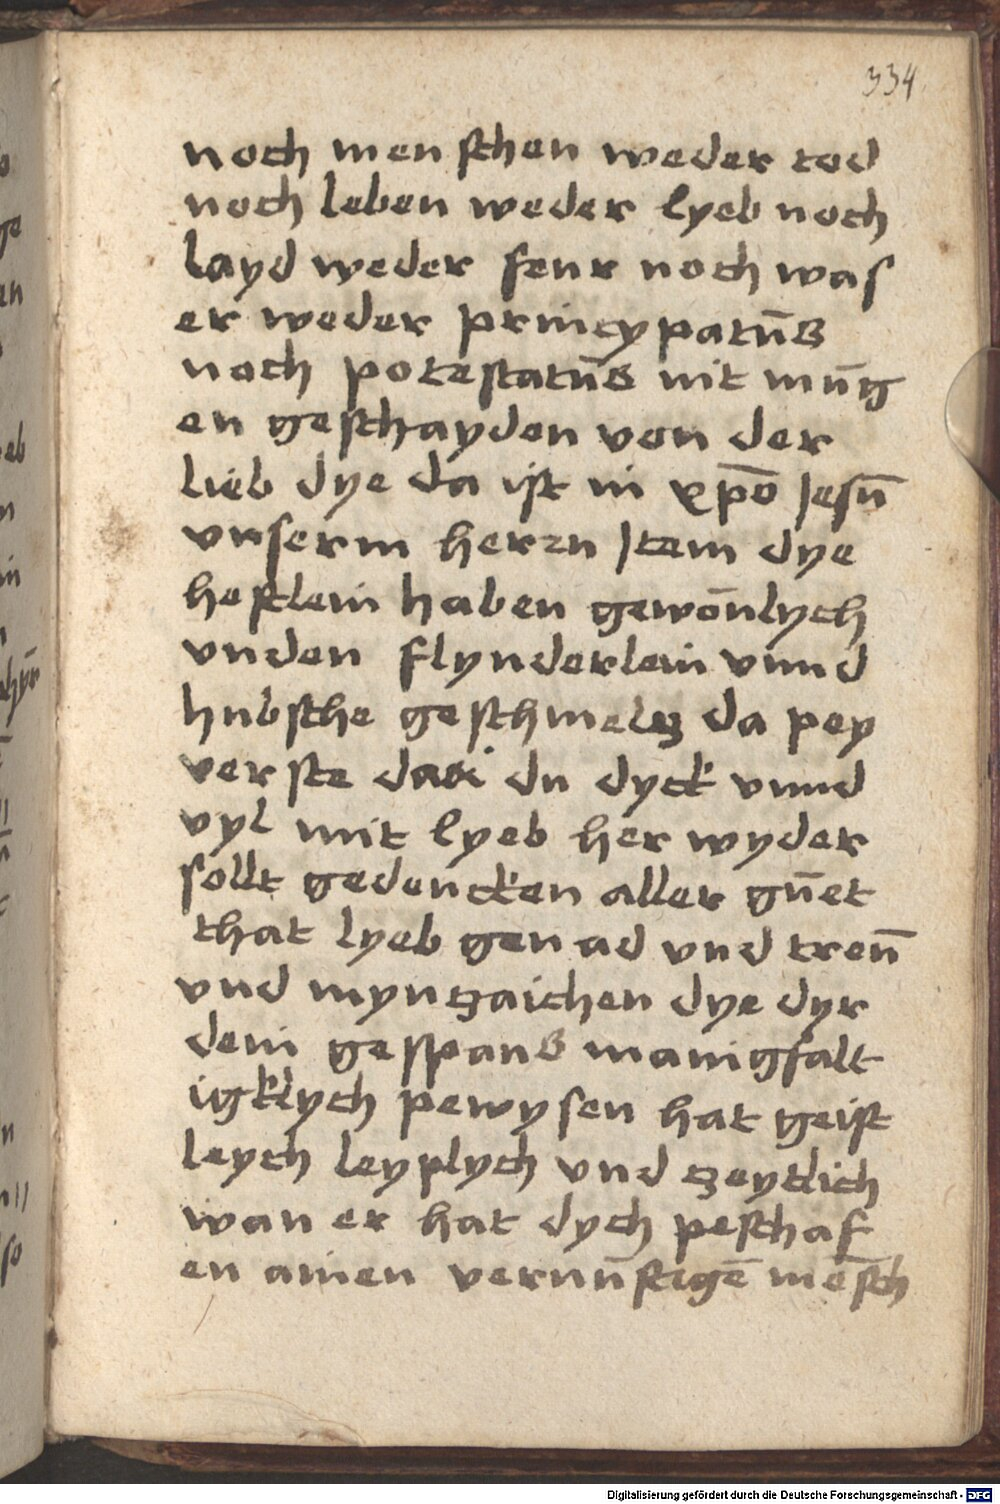 334
noch menschen weder tod
noch leben weder lyeb noch
layd weder feur noch was
er weder princypatūs
noch potestatūs nit mūg
en geschayden von der
lieb dye da ist in xp̄o Jesū
vnserm herrn Jtem dye
heftlein haben gewōnlych
vnden flynderlein vnnd
hubsche geschmeltz da pey
verste das du dyck vnnd
vyl mit lyeb her wyder
sollt gedencken aller gūet
that lyeb genad vnd treū
vnd myntzaichen dye dyr
dein gespons manigfalt
igklych pewysen hat geist
leych leyplych vnd tzeytlich
wan er hat dych peschaf
en ainen vernūftigē mēsch
Digitalisierung gefördert durch die Deutsche Forschungsgemeinschaft - DFG